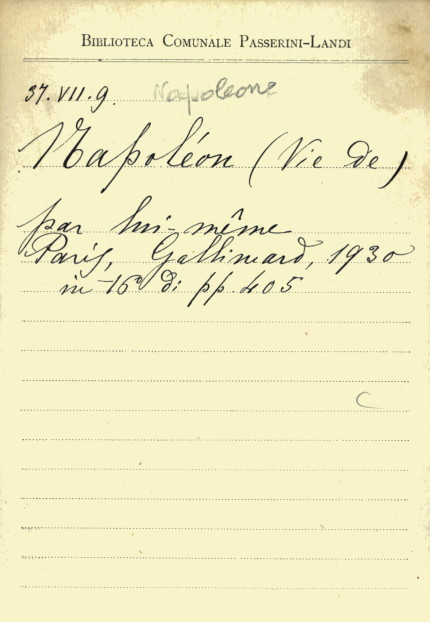 BIBLIOTECA COMUNALE PASSERINI-LANDI
37.VII.9. Napoleone
Napoléon (Vie de)
par lui-même
Paris, Gallimard, 1930
in-16° di pp. 405
C